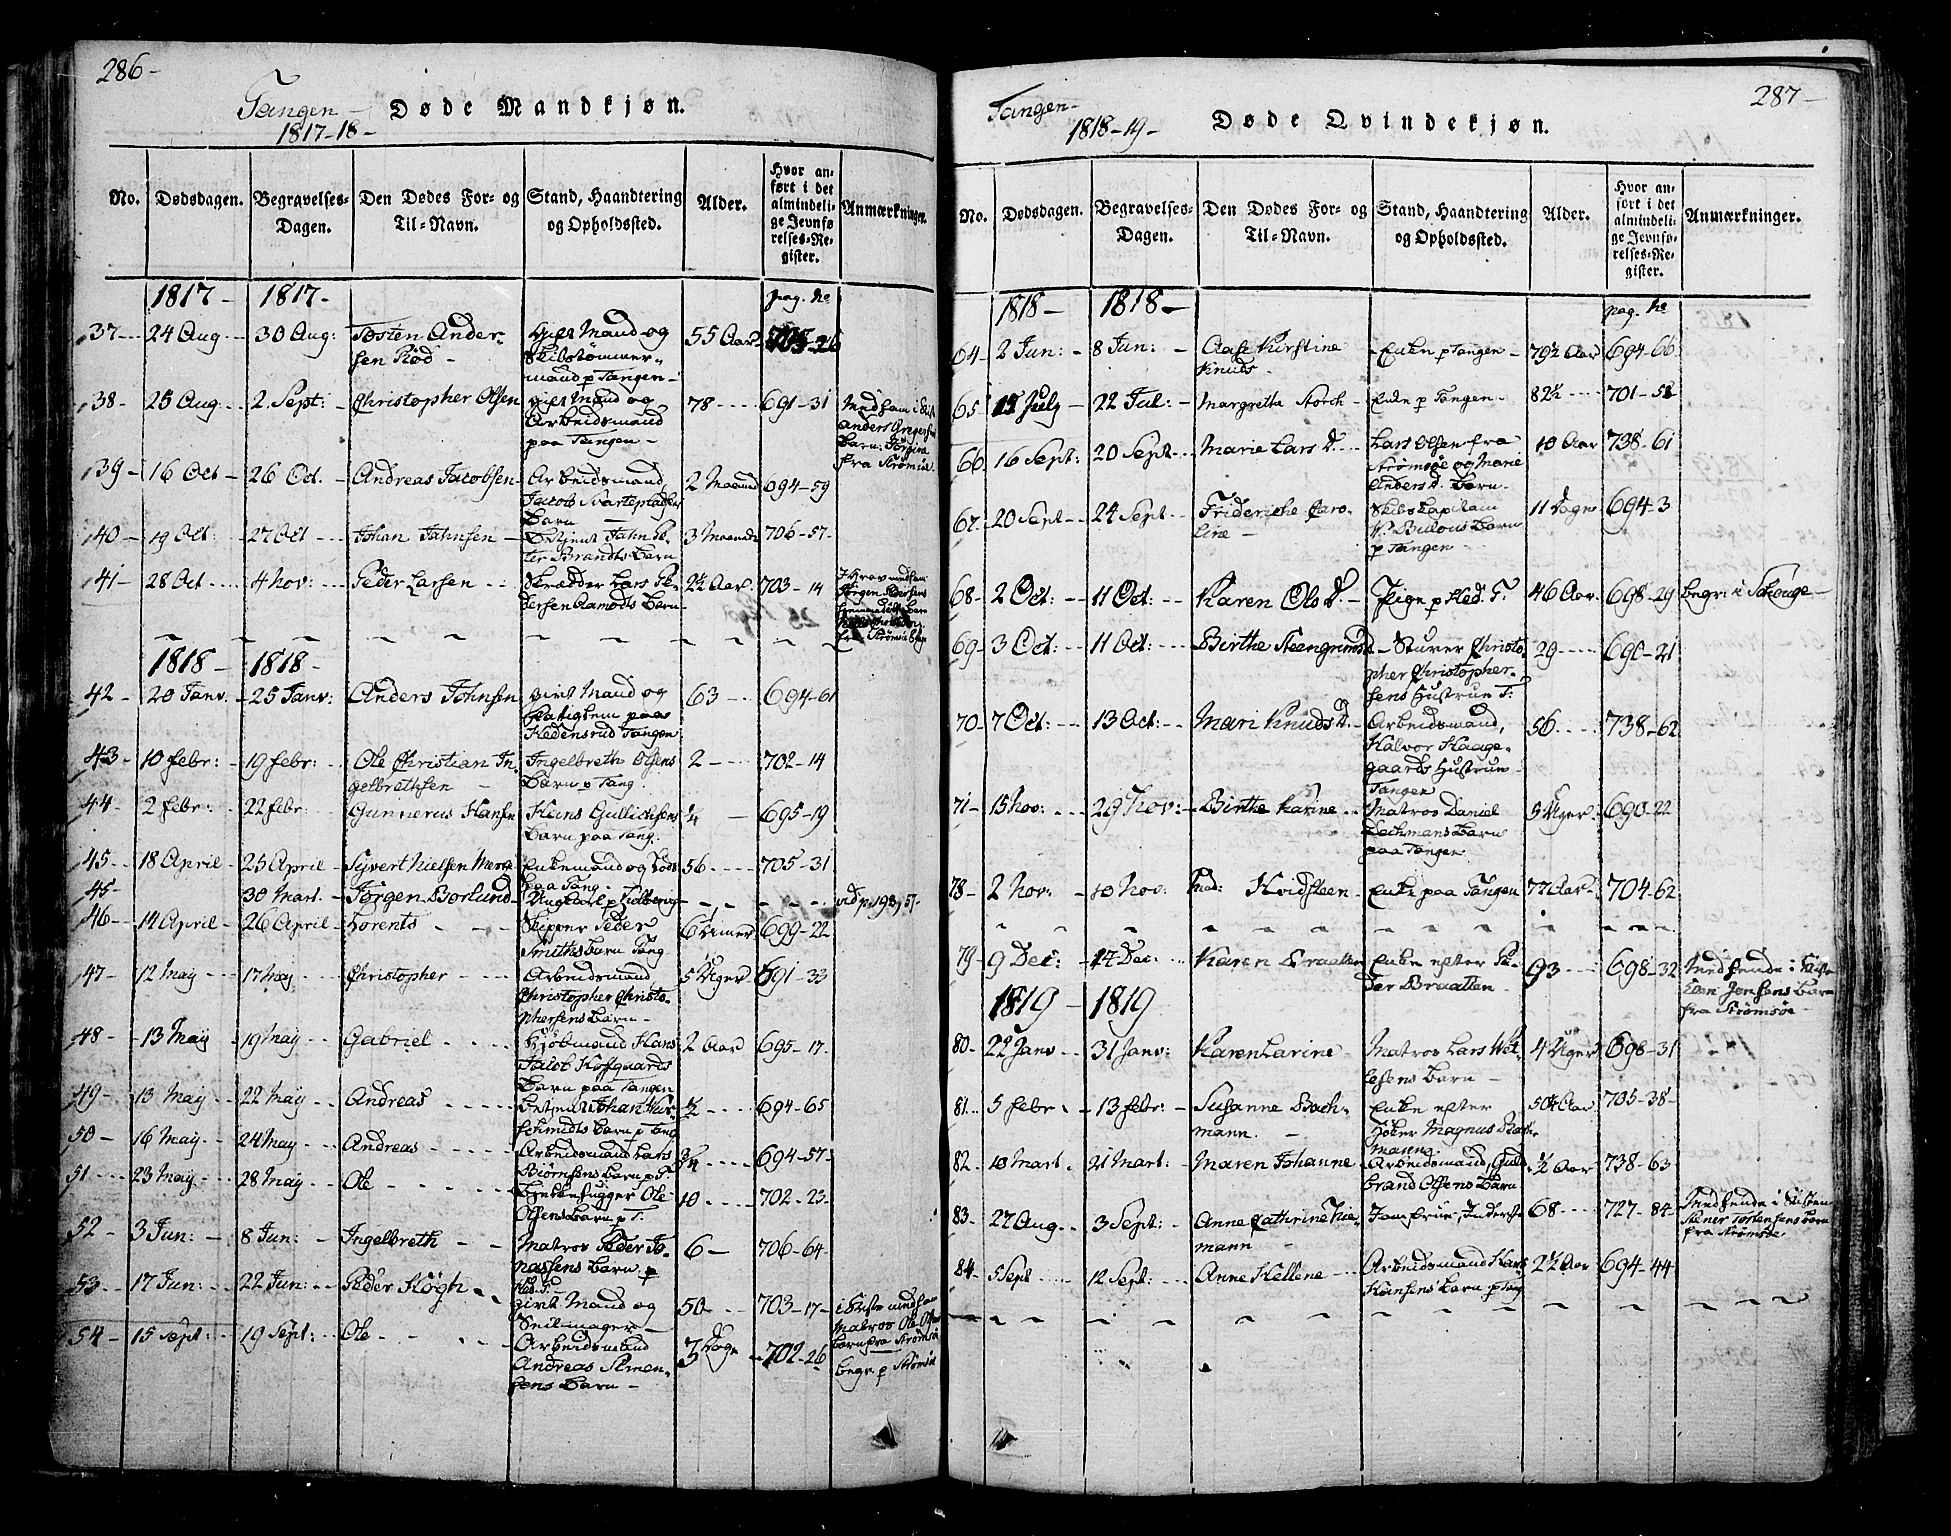 286-
Tangen - Døde Mandkjøn.
1817-18-
No. Dødsdagen. Begravelses-Dagen. Den Dødes For- og Til-Navn. Stand, Haandtering og Opholdssted. Alder. Hvor anført i det almindelige Jevnførelses-Register. Anmærkninger.
1817- 1817- pag. No
37- 24 Aug 30 Aug: Tosten Ander- Gift Mand og 55 Aar
sen Rød - Skibstømmer-
mand p Tangen-
38- 25 Aug 2. Sept: Christopher Olsen gift Mand og 78 691-31
Arbeidsmand
paa Tangen-
fra Strømsøe
39- 16 Oct 26 Oct. Andreas Jacobsen Arbeidsmand 2 Maaned 694-59
Jacob
Barn
40- 19 Oct: 27 Oct Johan Jahnsen 3 Maaned 706-57-
Brandts Barn
41- 28 Oct 4 Nov: Peder Larsen Skrædder Lars Pe- 2½ Aar. 703-14
dersen Aamodts Barn-
1818- 1818-
42- 20 Janv: 25 Janv: Anders Johnsen gift Mand og 63 694-61
paa
Hedensrud Tangen
43- 10 febr: 19 febr: Ole Christian In- Ingelbreth Olsens 2 702-14
gelbrethsen - Barn p Tang.
44- 2 febr: 22 febr Gunnerus Hansen Hans Gullichsens ¼ 695-19
Barn paa Tang.
45- 18 April 25 April Syvert Nielsen Enkemand og 56 705-31
paa Tang.
45- 30 Mart. Jørgen Borlund Ungkarl p vid p. 198, 57-
46- 14 April 26 April Lorents Skipper Peder 6 699-22
Smiths Barn Tang
47- 12 May 17 May Christopher Arbeidsmand 5 Uger 691-33
Christopher Christo-
phersens Barn-
48- 13 May 19 May Gabriel Kjøbmand Hans 2 Aar 695-17-
Jacob Hofgaards
Barn paa Tangen
49- 13 May 22 May Andreas Johan ½ 694-65
schmidts Barn p Tang
50- 16 May 24 May Andreas Arbeidsmand Lars ¾ 694-57-
Biørnsens Barn p T.
51 23 May 28 May Ole Ole 10 702-23-
Olsens Barn p T.
52- 3 Jun: 8 Jun: Ingelbreth Matros Peder Jo- 6 706-64
nassens Barn p
53- 17 Jun: 22 Jun: Peder Høgh gift Mand og 50 703-17- i Kiste med
Seilmager Matros Ole
Barn fra Strømsø
54- 15 Sept: 19 Sept: Ole Arbeidsmand 3 Dage 702-26 begr. p Strømsø
Andreas Simen-
sens Barn-
287-
Tangen- Døde Qvindekjøn.
1818-19-
No. Dødsdagen. Begravelses-Dagen. Den Dødes For- og Til-Navn. Stand, Haandtering og Opholdssted. Alder. Hvor anført i det almindelige Jevnførelses-Register. Anmærkninger.
1818- 1818- pag. No
64- 2 Jun: 8 Jun: Aase Kirstine Enke p Tangen 79½ Aar 694-66
Knuds-
65 July 22 Jul: Margretta Storch Enke p Tangen- 82½ 701-58
66. 16 Sept: 20 Sept Marie Lars D. Lars Olsen fra 10 Aar 738-61
Strømsøe og Marie
Anders D. Barn-
67. 20 Sept 24 Sept Friderike Caro- Skibskapitain 11 Dage 694-3
line- Barn
p Tangen
68- 2 Oct: 11 Oct: Karen Ols D. Pige p Hed. T. 46 Aar. 698-29 begr: i Skouge-
69- 3 Oct: 11 Oct: Birthe Steengrims D Sturer Christo- 29 690-21
pher Christopher-
sens Hustrue T:
70- 7 Oct: 13 Oct: Mari Knuds D. Arbeidsmand, 56 738-62
Halvor Haage-
gaards Hustrue-
Tangen
71- 15 Nov: 29 Nov: Birthe Karine Matros Daniel 5 Uger 690-22
Bachmans Barn
paa Tangen
78- 2 Nov: 10 Nov: Mad: Hvidsteen Enke paa Tangen 77 Aar 704-62
79- 9 Dec: 14 Dec: Karen Braatten Enke efter Pe- 93 698-32 Medsende i Kiste
der Braatten- Even Jensens Barn
fra Strømsøe-
1819- 1819
80- 22 Janv 31 Janv: Karen Larine Matros Lars 4 Uger 698-31
Barn-
81. 5 febr. 13 febr: Susanne Bach- Enke efter 50¼ Aar 735-38-
mann.- Høker Magnus Bach-
mann
82. 10 Mart. 21 Mart: Maren Johanne Arbeidsmand, Gul- ½ Aar 738-63
brand Olsens Barn
83. 27 Aug 3 Sept: Anne Cathrine Nie- Jomfrue, Inderst 68 727-84 Medsende i Kisten
mann- Stener Tostensens Barn
fra Strømsøe
84. 5 Sept 12 Sept: Anne Hellene Arbeidsmand Hans 2½ Aar 694-44
Hansens Barn p Tang